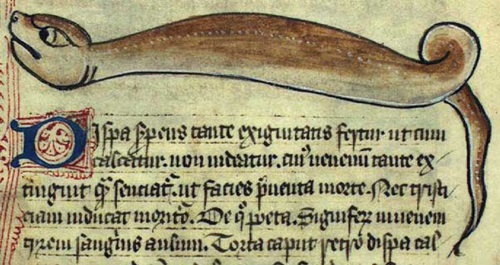 Dispa sp̄ens tante exiguitatis fertur ut cum
calcetur. non uideatur. cui᾽ uenenum tante ex
tinguit q̄ senciat᾽. ut facies p̄uenta morte. Nec tristi
ciam indicat morit᾽o. De qͦ poeta. Signifer̄ iuuenem
tyrem sanguīs aulum. Torta caput retro dispa cal